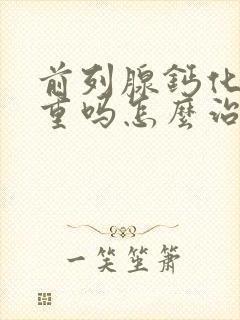 前列腺鈣化
重吗怎麼治
一笑笙箫